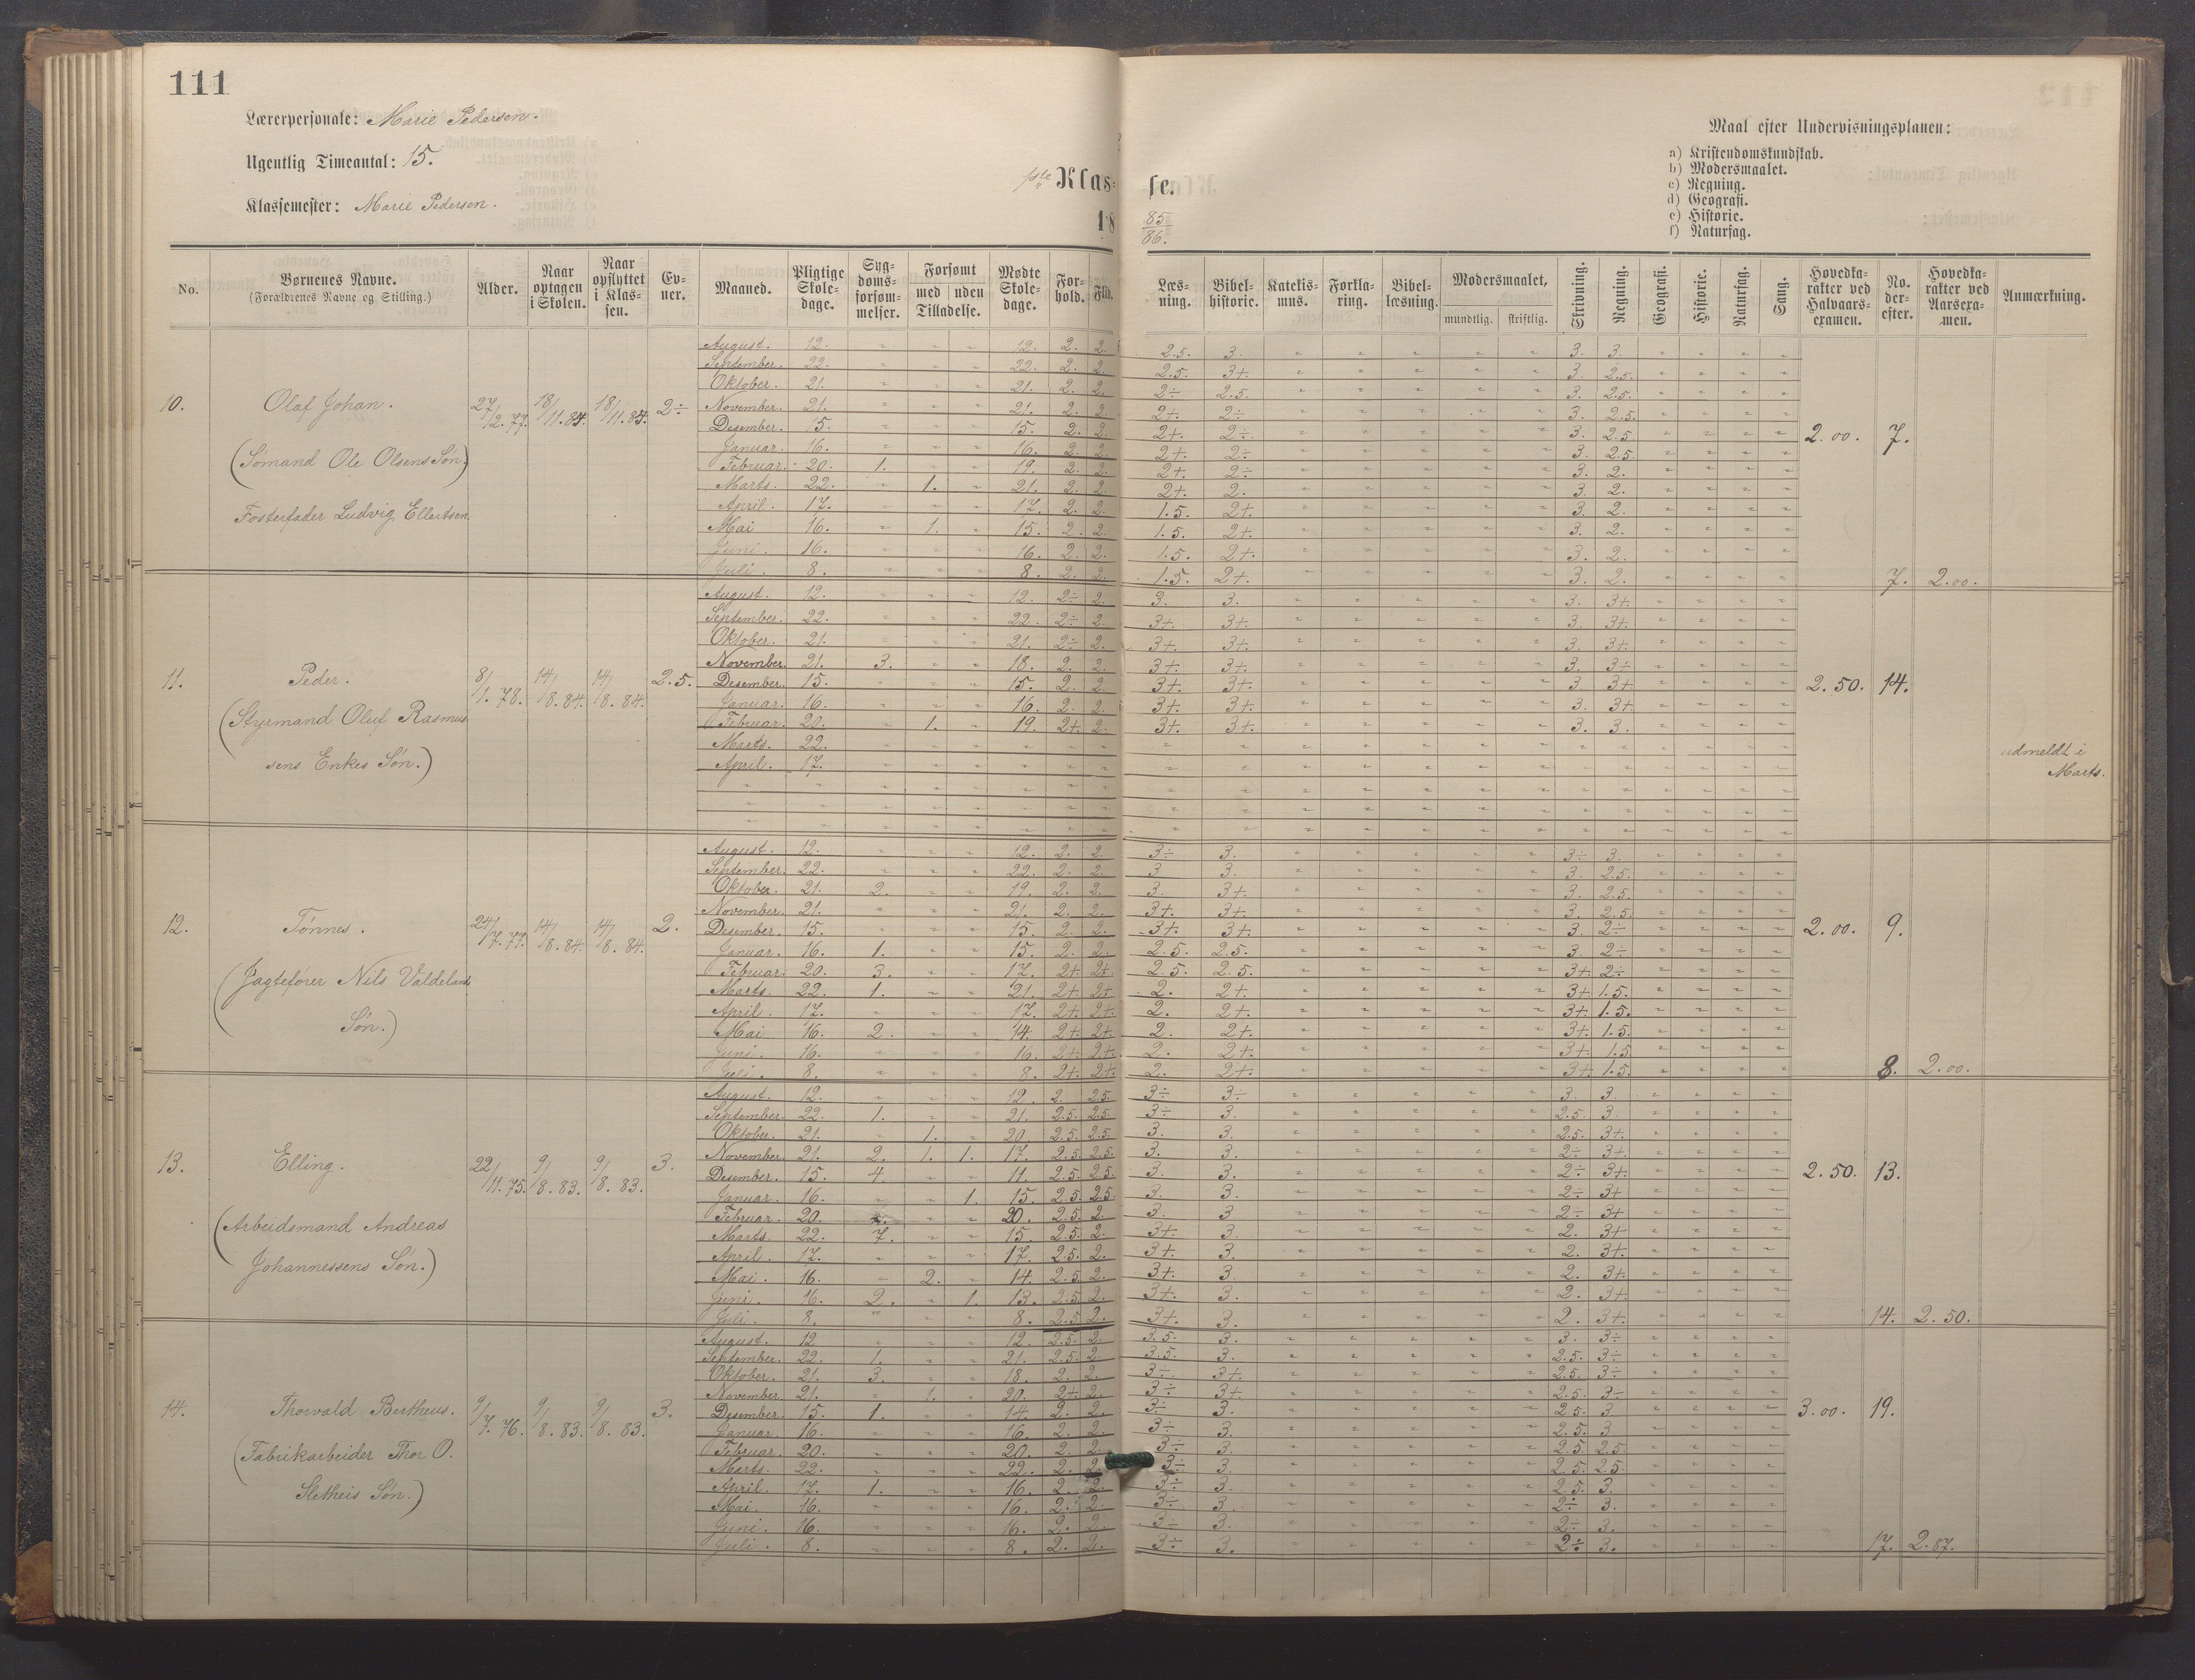 111
Lærerpersonale: Marie Pedersen.
Ugentlig Timeantal: 15.
Klassemester: Marie Pedersen.
1ste Klasse.
18 85/86.
Maal efter Undervisningsplanen:
a) Kristendomskundskab.
b) Modersmaalet.
c) Regning.
d) Geografi.
e) Historie.
f) Naturfag.
No. | Børnenes Navne. (Forældrenes Navne og Stilling.) | Alder. | Naar optagen i Skolen. | Naar opflyttet i Klassen. | Evner. | Maaned. | Pligtige Skoledage. | Sygdomsforsømmelser. | Forsømt med Tilladelse. | uden Tilladelse. | Mødte Skoledage. | Forhold. | Flid. | Læsning. | Bibelhistorie. | Katekismus. | Forklaring. | Bibellæsning. | Modersmaalet, mundtlig. | skriftlig. | Skrivning. | Regning. | Geografi. | Historie. | Naturfag. | Sang. | Hovedkarakter ved Halvaarsexamen. | No. derefter. | Hovedkarakter ved Aarsexamen. | Anmærkning.
10. Olaf Johan. 27/2.77. 18/11.84. 18/11.84. 2÷ 2.00. 7.
(Sømand Ole Olsens Søn.)
Fosterfader Ludvig Ellertsen
August. 12. 12. 2. 2. 2.5. 3. 3. 3.
September. 22. 22. 2. 2. 2.5. 3+. 3. 2.5.
Oktober. 21. 21. 2. 2. 2÷ 2.5. 3. 2.5.
November. 21. 21. 2. 2. 2+. 2÷ 3. 2.5.
Desember. 15. 15. 2. 2. 2+. 2÷ 3. 2.5
Januar. 16. 16. 2. 2. 2+. 2÷ 3. 2.5
Februar. 20. 1. 19. 2. 2. 2+. 2÷ 3. 2.
Marts. 22. 1. 21. 2. 2. 2+. 2. 3. 2.
April. 17. 17. 2. 2. 1.5. 2+. 3. 2.
Mai 16. 1. 15. 2. 2. 1.5. 2+. 3. 2.
Juni. 16. 16. 2. 2. 1.5. 2+. 3. 2.
Juli. 8. 8. 2. 2. 1.5. 2+. 3. 2. 7. 2.00.
11. Peder. 8/1.78. 14/8.84. 14/8.84. 2.5. 2.50. 14.
(Styrmand Oluf Rasmus
sens Enkes Søn.)
August. 12. 12. 2÷ 2. 3. 3. 3. 3+.
September. 22. 22. 2÷ 2. 3+. 3+. 3. 3+.
Oktober. 21. 21. 2÷ 2. 3+. 3+. 3. 3+.
November. 21. 3. 18. 2. 2. 3+. 3+. 3. 3+
Desember. 15. 15. 2. 2. 3+. 3+. 3. 3+
Januar. 16. 16. 2. 2. 3+. 3+. 3. 3+.
Februar. 20. 1. 19. 2+. 2. 3+. 3+. 3. 3.
Marts. 22.
April. 17.
udmeldt i
Marts.
12. Tønnes. 24/7.77. 14/8.84. 14/8.84. 2. 2.00. 9.
(Jagtefører Nils Valdelands
Søn.)
August. 12. 12. 2. 2. 3÷ 3. 3÷ 3.
September. 22. 22. 2. 2. 3 3. 3. 2.5.
Oktober. 21. 2. 19. 2. 2. 3. 3+. 3. 2.5.
November. 21. 21. 2. 2. 3+. 3+. 3. 2.5.
Desember. 15. 15. 2. 2. 3+. 3+. 3. 2÷
Januar. 16. 1. 15. 2. 2. 2.5. 2.5. 3. 2÷
Februar. 20. 3. 17. 2+ 2+. 2.5. 2.5. 3+. 2÷
Marts. 22. 1. 21. 2+. 2+ 2. 2+. 3+ 1.5.
April. 17. 17. 2+. 2+. 2. 2+. 3+. 1.5.
Mai 16. 2. 14. 2+. 2+. 2. 2+. 3+. 1.5.
Juni. 16. 16. 2+. 2+. 2. 2+. 3+. 1.5.
Juli. 8. 8. 2+. 2+. 2. 2+. 3+. 1.5. 8. 2.00.
13. Elling. 22/11.75. 9/8.83. 9/8.83. 3. 2.50. 13.
(Arbeidsmand Andreas
Johannessens Søn.)
August. 12. 12. 2. 2.5. 3÷ 3÷ 3. 3.
September. 22. 1. 21. 2.5. 2.5. 3÷ 3. 2.5. 3.
Oktober. 21. 1. 20. 2.5. 2.5. 3. 3. 2.5. 3+.
November. 21. 2. 1. 1. 17. 2.5. 2.5. 3. 3. 2÷ 3+.
Desember. 15. 4. 11. 2.5. 2.5. 3. 3. 2÷ 3+.
Januar. 16. 1. 15. 2.5. 2.5 3. 3. 2÷ 3+
Februar. 20. 20. 2.5. 2. 3. 3 2÷ 3+
Marts. 22. 7. 15. 2.5. 2. 3+. 3. 2. 3+
April. 17. 17. 2.5. 2. 3+. 3. 2. 3+.
Mai. 16. 2. 14. 2.5. 2. 3+. 3. 2. 3+.
Juni. 16. 2. 1. 13. 2.5. 2. 3+. 3. 2. 3+.
Juli. 8. 8. 2.5 2. 3+. 3. 2. 3+. 14. 2.50.
14. Thorvald Bertheus. 9/7.76. 9/8.83. 9/8.83. 3. 3.00. 19.
(Fabrikarbeider Thor O.
Sletheis Søn.)
August. 12 12. 2.5. 2. 3.5. 3. 3. 3÷
September. 22. 1. 21. 2.5. 2. 3.5. 3. 2.5. 3÷
Oktober. 21. 3. 18. 2. 2. 3÷ 3+. 2.5. 3÷
November 21. 1. 20. 2+. 2. 3÷ 3+. 2.5. 3÷
Desember. 15. 1. 14. 2. 2. 3÷ 3. 2.5. 3.
Januar. 16. 16. 2. 2. 3÷ 3. 2.5. 3
Februar. 20. 20. 2. 2. 3÷ 3. 2.5. 2.5.
Marts. 22. 22. 2. 2. 3÷ 3. 2.5. 2.5.
April. 17. 1. 16. 2. 2. 3÷ 3. 2.5. 3.
Mai. 16. 16. 2. 2. 3÷ 3. 2÷ 3.
Juni. 16. 16. 2. 2. 3÷ 3. 2÷ 3.
Juli. 8. 8. 2. 2. 3÷ 3. 2÷ 3. 17. 2.87.